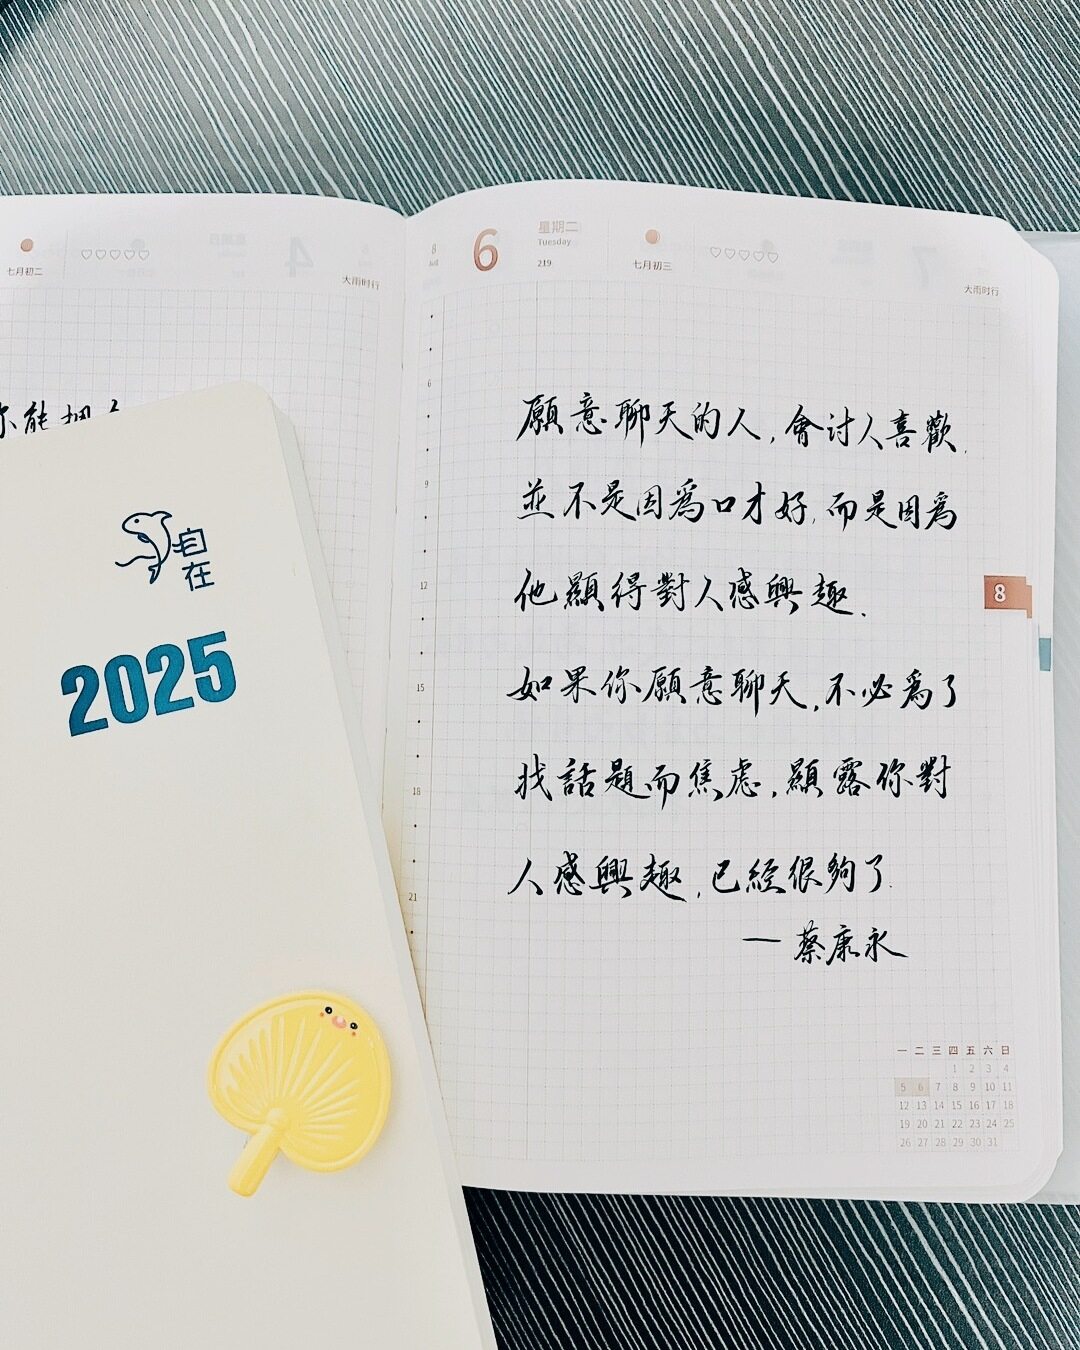 七月初二
大雨时行
你能把
自在
2025
8
Aug
6
星期二
Tuesday
219
七月初三
大雨时行
6
9
12
15
18
21
願意聊天的人,會討人喜歡.
並不是因為口才好,而是因為
他顯得對人感興趣.
如果你願意聊天,不必為了
找話題而焦虑,顯露你對
人感興趣,已經很夠了.
—蔡康永
8
一 二 三 四 五 六 日
1 2 3 4
5 6 7 8 9 10 11
12 13 14 15 16 17 18
19 20 21 22 23 24 25
26 27 28 29 30 31